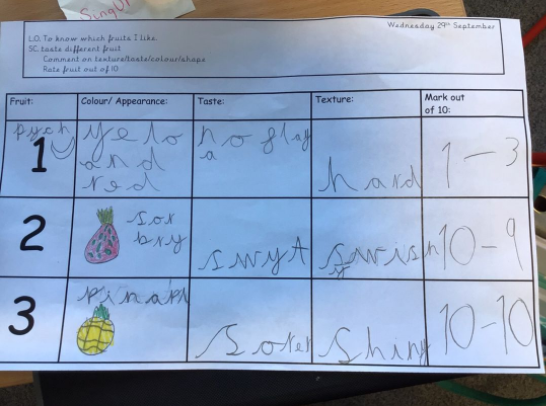 SungU
Wednesday 29th September
L.O. To know which fruits I like.
SC. taste different fruit
Comment on texture/taste/colour/shape
Rate fruit out of 10
Fruit:
Colour/ Appearance:
Taste:
Texture:
Mark out
of 10:
pych
1
yelo
and
red
no flag
a
hard
1-3
2
sor
bry
swyt
10-9
3
pinapl
Soter
Shiny
10-10